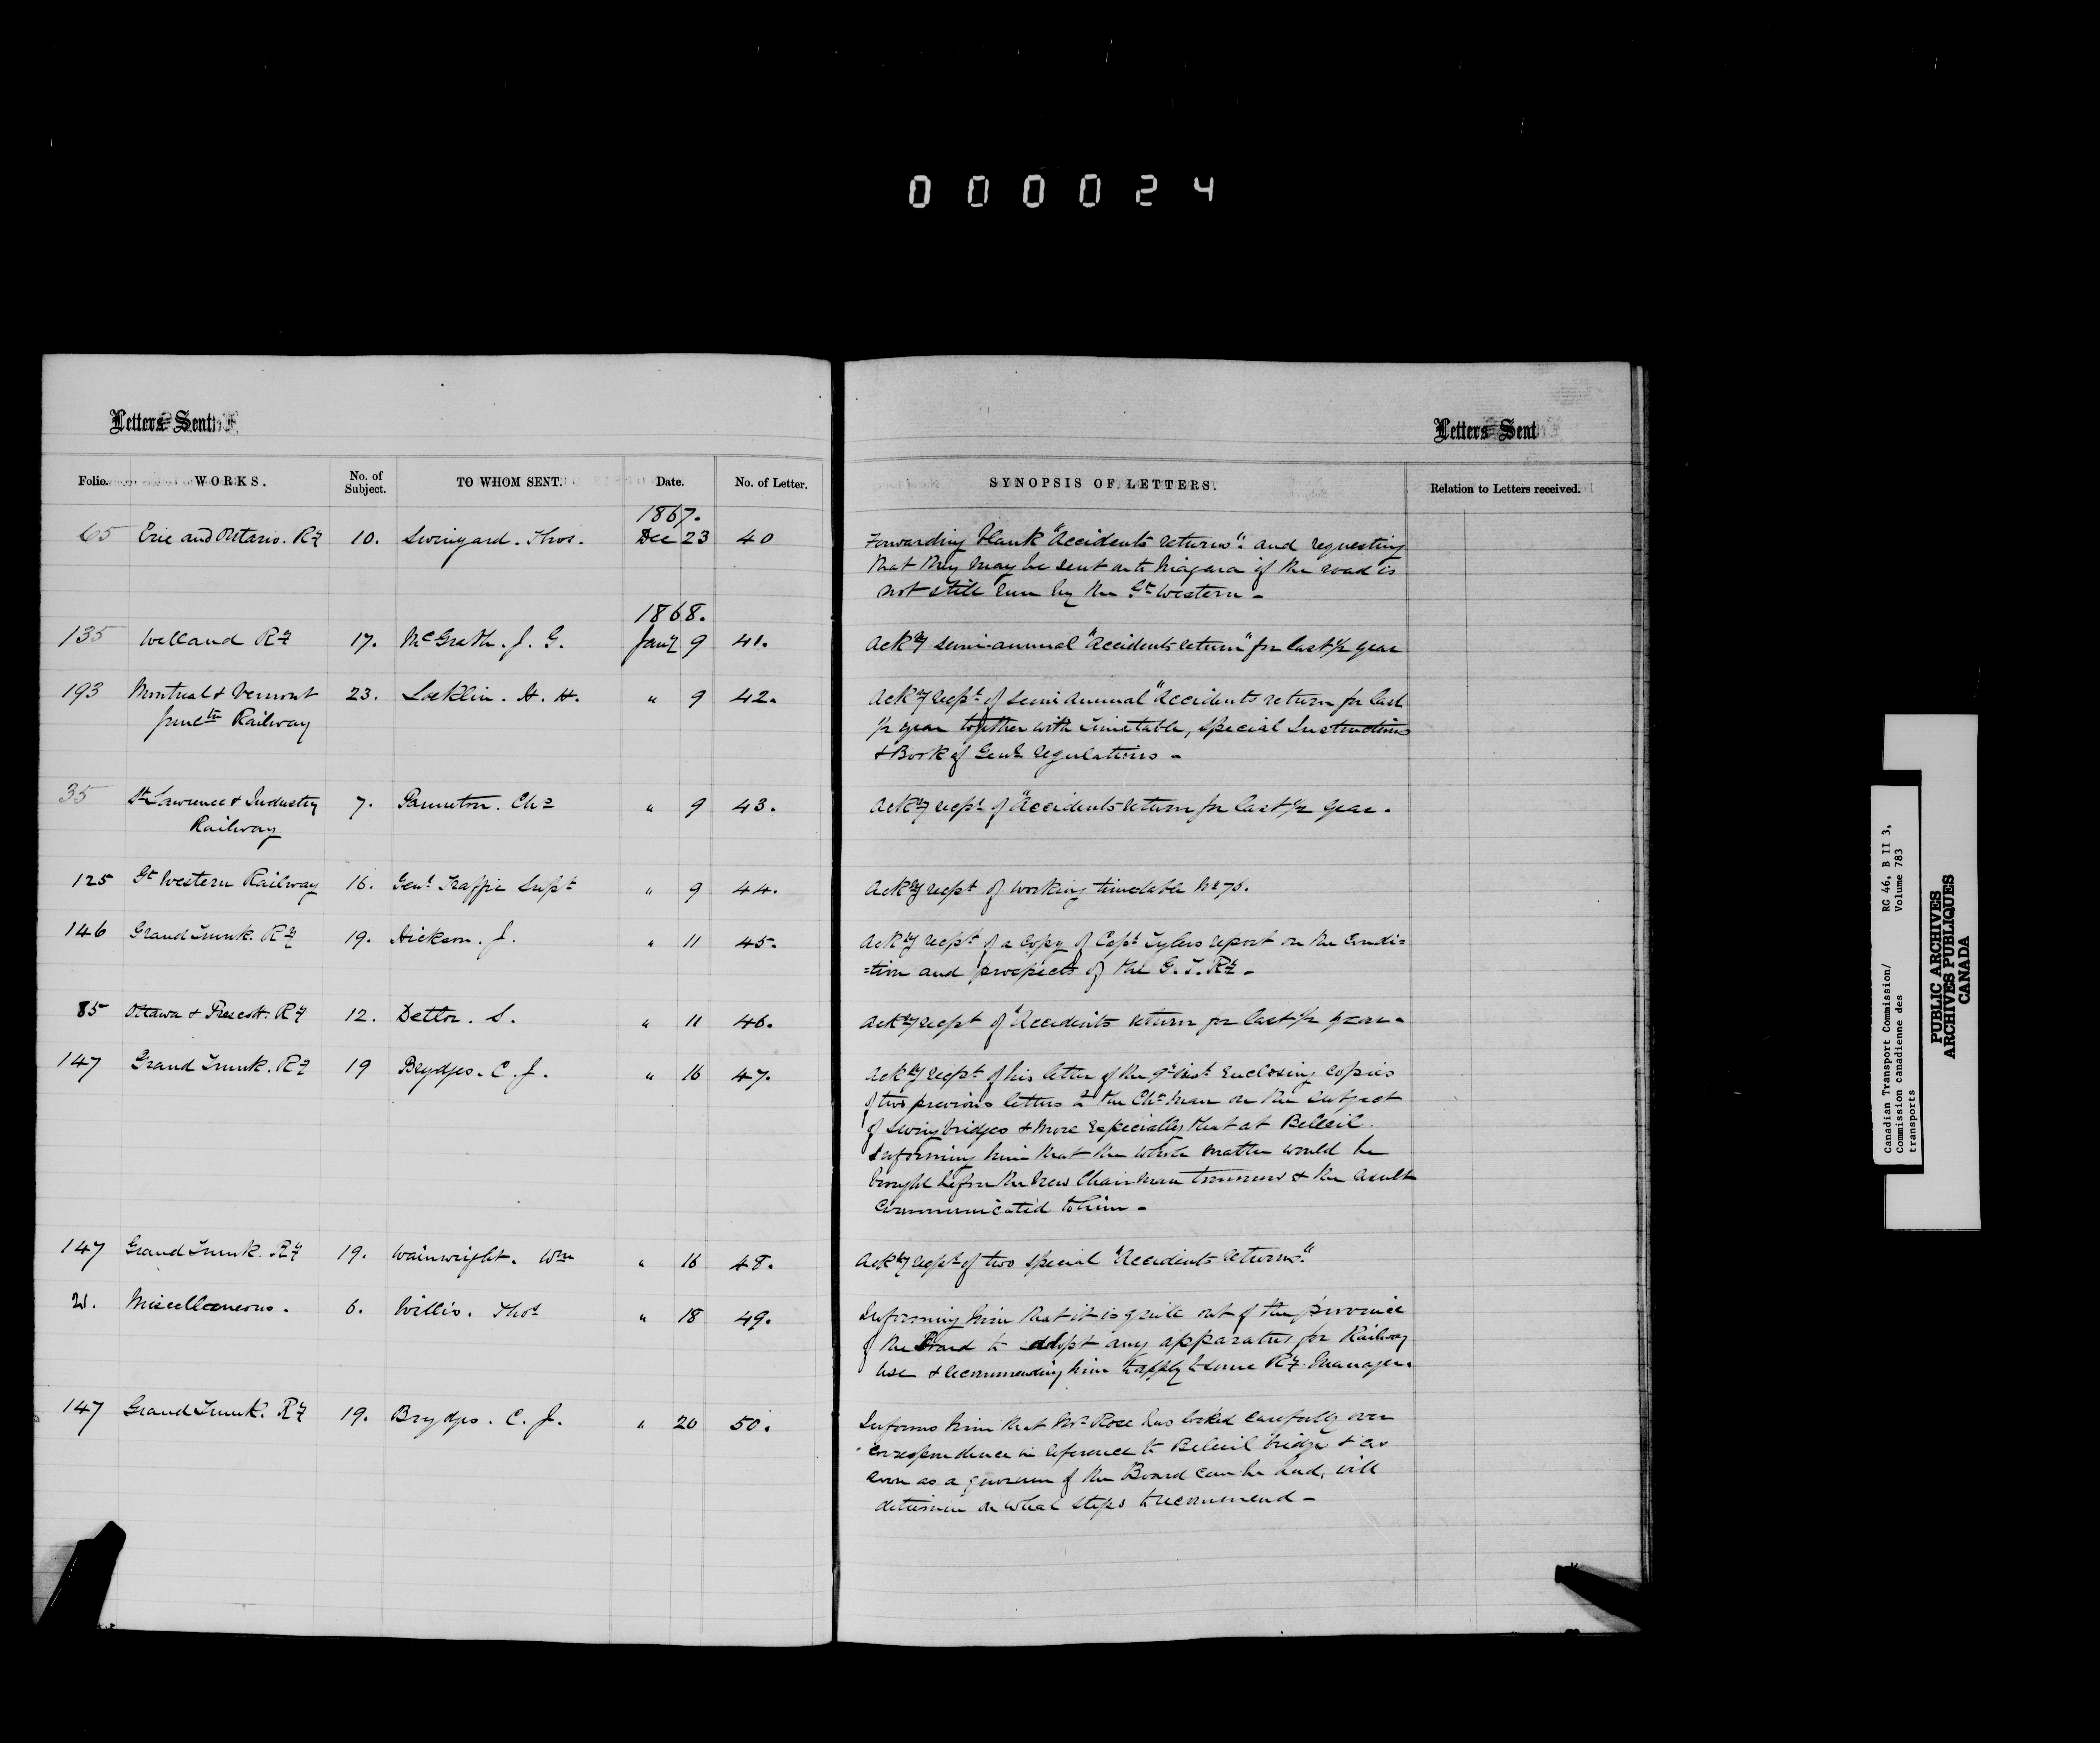 0 0 0 0 2 4
Letters Sent
Letters Sent
Folio. WORKS. No. of Subject. TO WHOM SENT. Date. No. of Letter. SYNOPSIS OF LETTERS. Relation to Letters received.
1867.
65 Erie and Ontario. Ry 10. Swinyard. Thos. Dec 23 40 Forwarding blank "Accidents returns". and requesting
that they may be sent on to Niagara if the road is
not still run by the Gt Western -
1868.
135 Welland Ry 17. McGrath. J. G. Jany 9 41. Ackg semi-annual "Accidents return" for last ½ year
193 Montreal & Vermont 23. Locklin. H. H. " 9 42. Ackg recpt of semi annual "Accidents return for last
Junctn Railway ½ year together with timetable, special Instructions
& Book of Genl regulations -
35 St Lawrence & Industry 7. Panneton. Chs " 9 43. Ackg recpt of "Accidents return for last ½ year.
Railway
125 Gt Western Railway 16. Genl Traffic Supt " 9 44. Ackg recpt of working timetable No 76.
146 Grand Trunk. Ry 19. Hickson. J. " 11 45. Ackg recpt of a copy of Capt Tylers report on the condi=
=tion and prospects of the G. T. Ry -
85 Ottawa & Prescott. Ry 12. Detlor. S. " 11 46. Ackg recpt of "Accidents return for last ½ year.
147 Grand Trunk. Ry 19 Brydges. C. J. " 16 47. Ackg recpt of his letter of the 9th inst enclosing copies
of two previous letters to the Chrman on the subject
of Swing bridges & more especially that at Beloeil.
Informing him that the whole matter would be
brought before the new Chairman tomorrow & the result
communicated to him -
147 Grand Trunk. Ry 19. Wainwright. Wm " 16 48. Ackg recpt of two special "Accidents returns."
21. Miscellaneous. 6. Willis. Thos " 18 49. Informing him that it is quite out of the province
of the Board to adopt any apparatus for Railway
use & recommending him to apply to some Ry. Manager.
147 Grand Trunk. Ry 19. Brydges. C. J. " 20 50. Informs him that Mr Rose has looked carefully over
correspondence in reference to Beloeil bridge & as
soon as a quorum of the Board can be had, will
determine on what steps to recommend -
Canadian Transport Commission/ RG 46, B II 3,
Commission canadienne des Volume 783
transports
PUBLIC ARCHIVES
ARCHIVES PUBLIQUES
CANADA